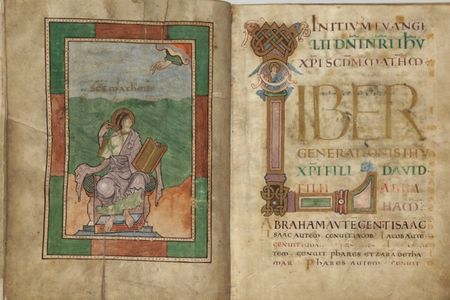 INITIUM EVANGE
LII DNI NRI IHV
XPI SCDM MATHEV
LIBER
GENERATIONIS IHV
XPI FILI DAVID
FILII ABRA
HAM
ABRAHAM AVTE GENT ISAAC
ISAAC AUTEM GENUIT IACOB IACOB AUTE
GENUIT
TEM GENUIT PHARES ET ZARA DE THA
MAR PHARES AUTEM GENUIT